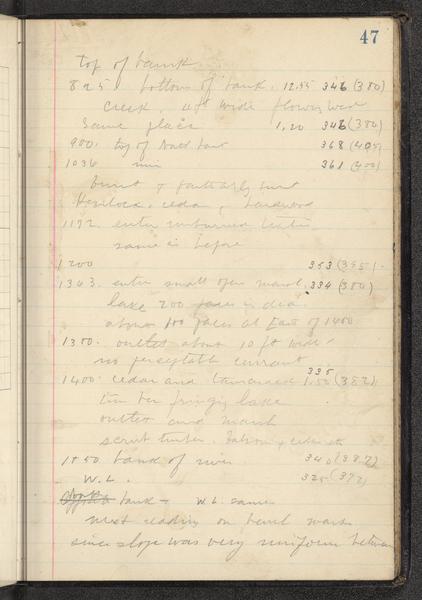 47
top of bank
825. bottom of bank. 12.55 346 (380)
Creek, 4 ft wide flowing West
Same place 1.20 346 (380)
900. top of bank 368 (405)
1036 361 (400)
burnt & partially burnt
Hemlock, cedar,
1192. enter unburned
same as before
1200 353 (395).
1343. enter small open marsh. 334 (380)
lake 200 paces in dia
about 100 paces at East of 1400
1350. outlet about 10 ft wide
no perceptable current
335
1400. cedar and tamarack 1.50 (382)
timber fringing lake
outlet and marsh
scrub timber.
1850 bank of river 340 (387)
W.L. 325 (372)
bank W.L. same
next reading on bench mark
since slope was very uniform between